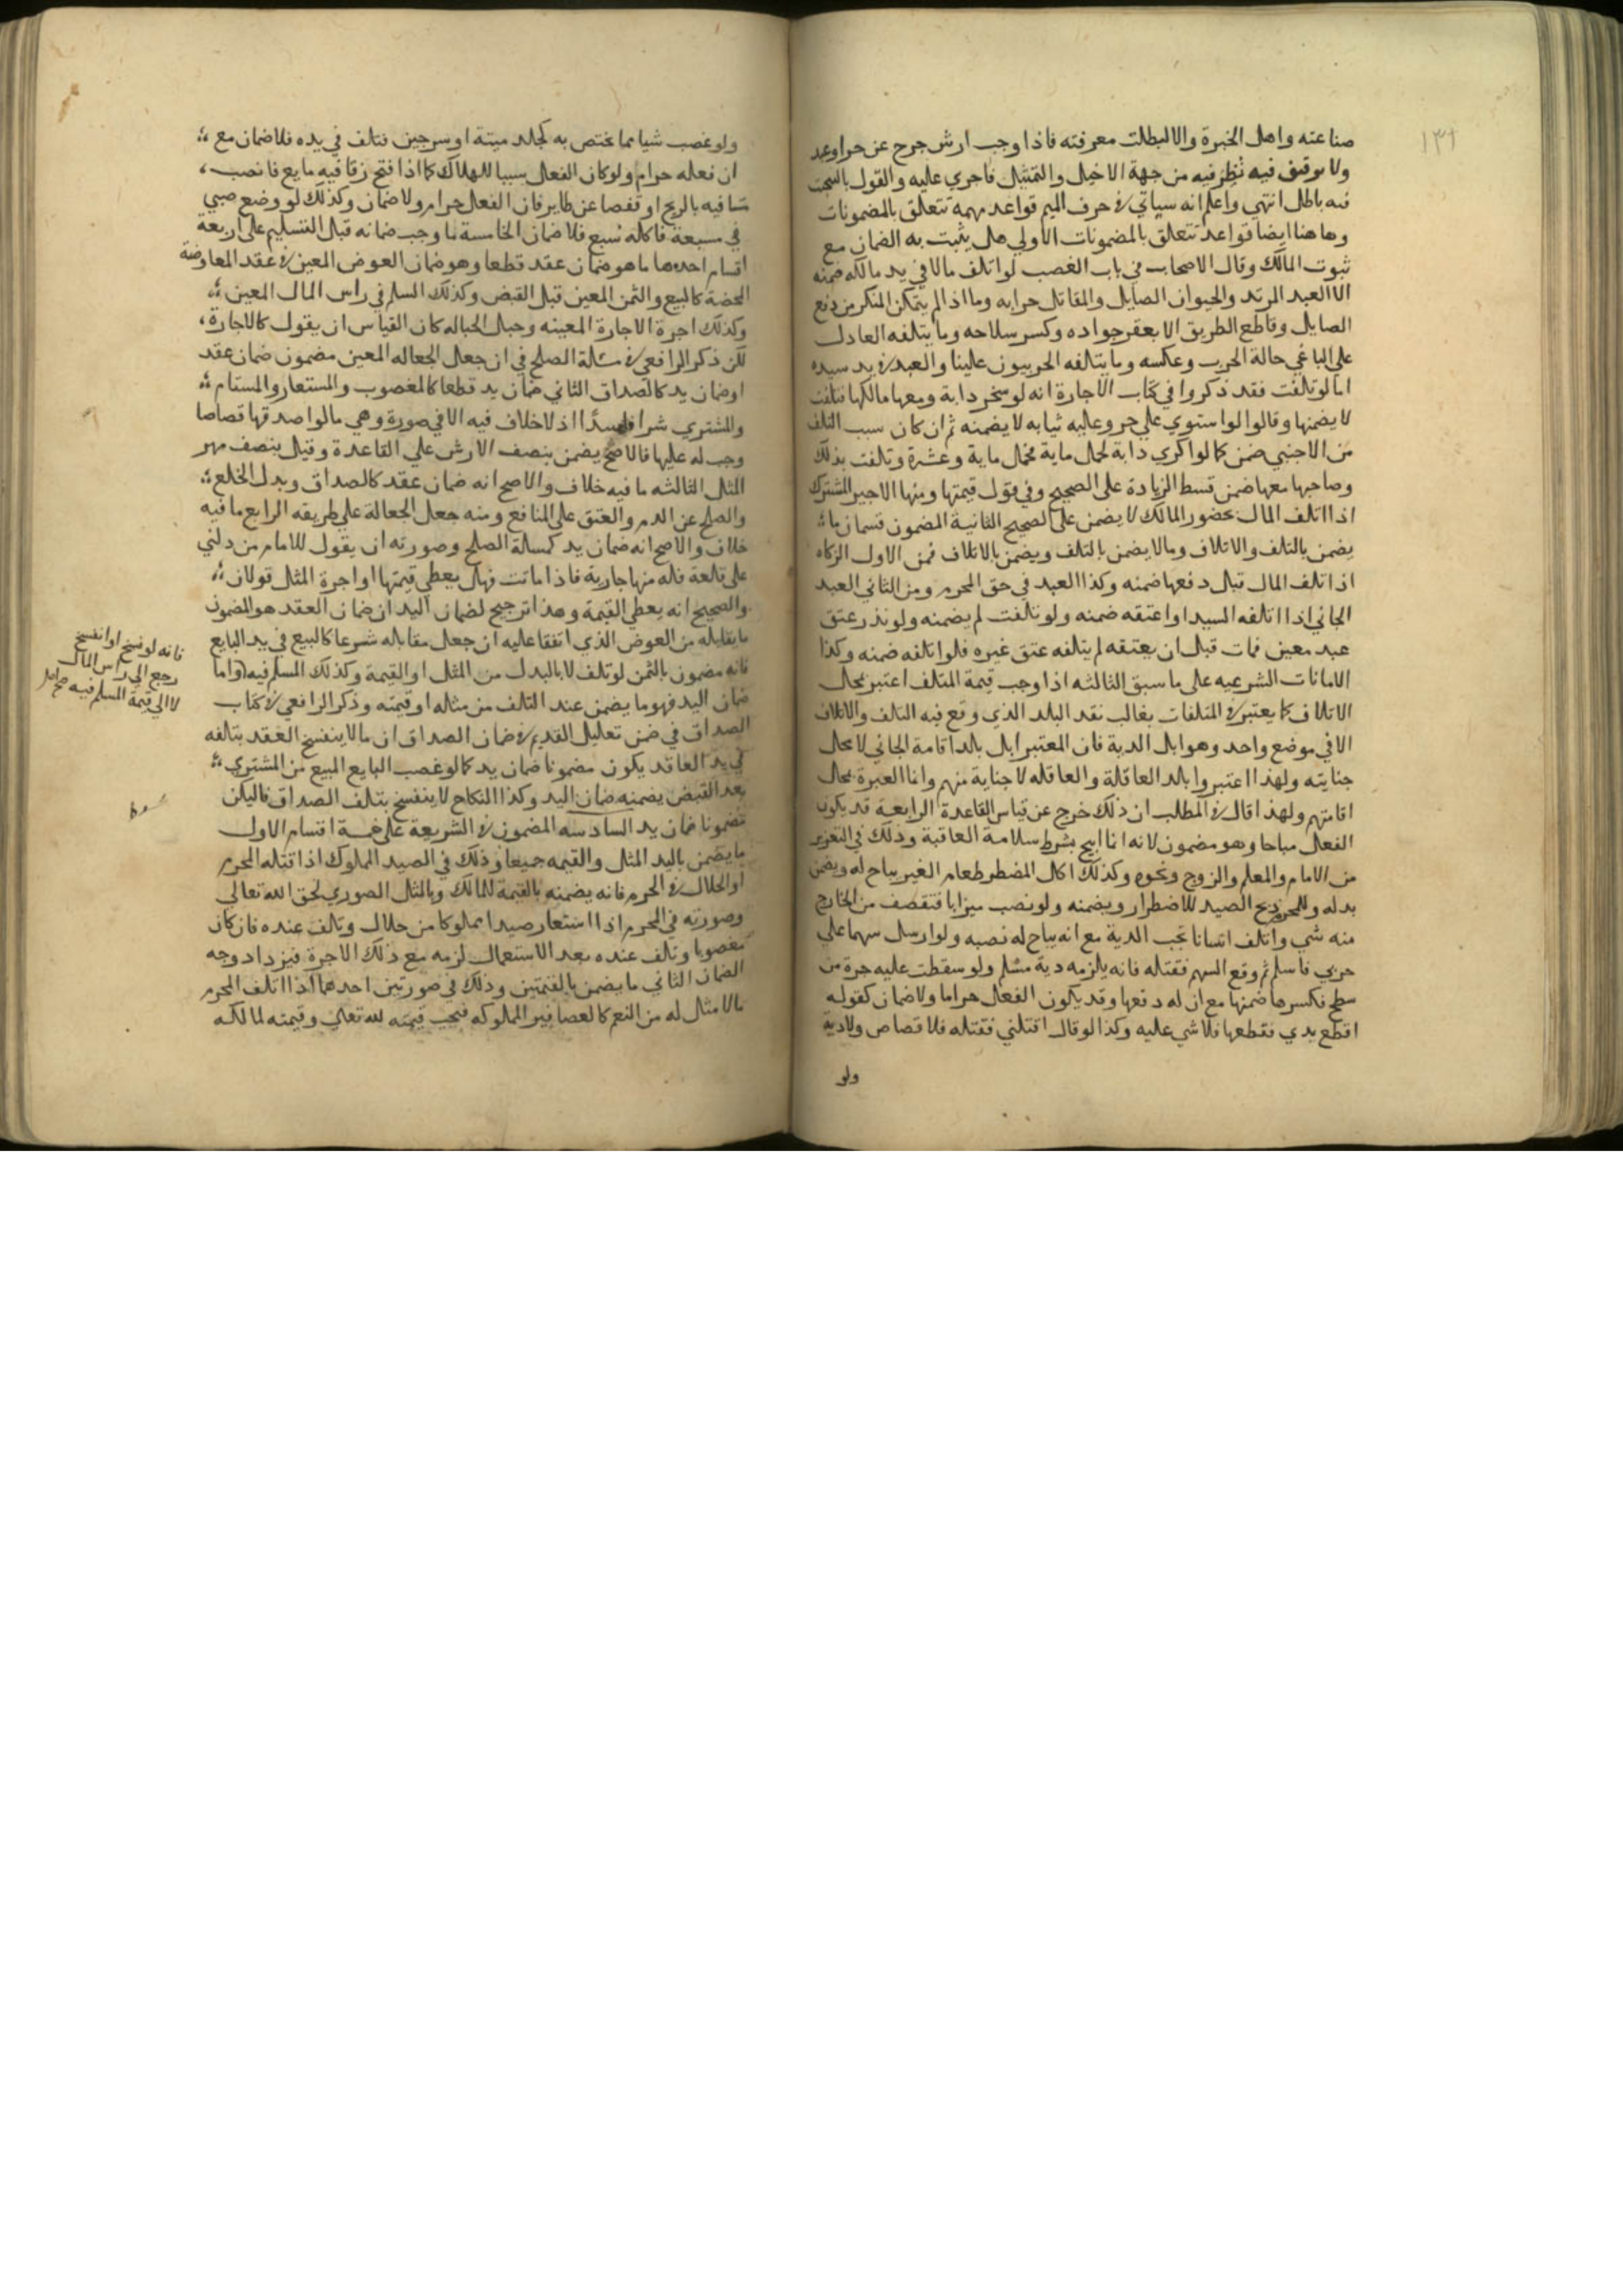 ١٣١
صناعته واهل الخبرة والا لبطلت معرفته فاذا وجب ارش جرح عن حر او عبد
ولا توقيف فيه نُظِر فيه من جهة الاخيل والتمثيل فاجري عليه والقول بالبحت
فيه باطل انتهي واعلم انه سياتي في حرف الميم قواعد مهمة تتعلق بالمضمونات
وها هنا ايضا قواعد تتعلق بالمضمونات الاولي هل يثبت به الضمان مع
ثبوت المالك وقال الاصحاب في باب الغصب لو اتلف مالا في يد مالكه ضمنه
الا العبد المرتد والحيوان الصايل والمقاتل حرابه وما اذا لم يتمكن المنكر من دفع
الصايل وقاطع الطريق الا بعقر جواده وكسر سلاحه وما يتلفه العادل
علي الباغي حالة الحرب وعكسه وما يتلفه الحربيون علينا والعبد في يد سيده
اما لو تلفت فقد ذكروا في كتاب الاجارة انه لو سخر دابة ومعها مالكها فتلفت
لا يضمنها وقالوا لو استوي علي حر وعليه ثيابه لا يضمنه ثم ان كان سبب التلف
من الاجنبي ضمن كما لو اكري دابة لحمل ماية فحمل ماية وعشرة وتلفت بذلك
وصاحبها معها ضمن قسط الزيادة علي الصحيح وفي قول قيمتها ومنها الاجير المشترك
اذا اتلف المال بحضور المالك لا يضمن علي الصحيح الثانية المضمون قسمان ما
يضمن بالتلف والاتلاف وما لا يضمن بالتلف ويضمن بالاتلاف فمن الاول الزكاه
اذا تلف المال قبل دفعها ضمنه وكذا العبد في حق المحرم ومن الثاني العبد
الجاني اذا اتلفه السيد او اعتقه ضمنه ولو تلفت لم يضمنه ولو نذر عتق
عبد معين فمات قبل ان يعتقه لم يتلفه عتق غيره فلو اتلفه ضمنه وكذا
الامانات الشرعيه علي ما سبق الثالثه اذا وجب قيمة المتلف اعتبر بحال
الاتلاف كما يعتبر في المتلفات بغالب نقد البلد الذي وقع فيه التلف والاتلاف
الا في موضع واحد وهو ابل الدية فان المعتبر ابل بلد اقامة الجاني لا بحال
جنايته ولهذا اعتبروا بلد العاقلة والعاقله لا جناية منهم وانما العبرة بحال
اقامتهم ولهذا قال في المطلب ان ذلك خرج عن قياس القاعدة الرابعة قد يكون
الفعل مباحا وهو مضمون لانه انما ابيح بشرط سلامة العاقبة وذلك في التعزير
من الامام والمعلم والزوج ونحوه وكذلك اكل المضطر طعام الغير يباح له ويضمن
بدله وللمحرم ذبح الصيد للاضطرار ويضمنه ولو نصب ميزابا فتقصف من الخارج
منه شي واتلف انسانا تجب الدية مع انه يباح له نصبه ولو ارسل سهما علي
حربي فاسلم ثم وقع السهم فقتله فانه يلزمه دية مسلم ولو سقطت عليه جرة من
سطح فكسرها ضمنها مع ان له دفعها وقد يكون الفعل حراما ولا ضمان كقوله
اقطع يدي فقطعها فلا شي عليه وكذا لو قال اقتلني فقتله فلا قصاص ولا دية
ولو
ولو غصب شيا مما يختص به كجلد ميتة او سرجين فتلف في يده فلا ضمان مع
ان فعله حرام ولو كان الفعل سببا للهلاك كما اذا فتح زقا فيه مايع فانصب
ما فيه بالريح او قفصا عن طاير فان الفعل حرام ولا ضمان وكذلك لو وضع صبي
في مسبعة فاكله سبع فلا ضمان الخامسة ما وجب ضمانه قبل التسليم علي اربعة
اقسام احدها ما هو ضمان عقد قطعا وهو ضمان العوض المعين في عقد المعاوضة
المحضة كالبيع والثمن المعين قبل القبض وكذلك السلم في راس المال المعين
وكذلك اجرة الاجارة المعينه وجعل الجعاله كان القياس ان يقول كالاجارة
لكن ذكر الرافعي في مسالة الصلح في ان جعل الجعاله المعين مضمون ضمان عقد
او ضمان يد كالصداق الثاني ضمان يد قطعا كالمغصوب والمستعار والمستام
والمشتري شرا فاسدًا اذ لا خلاف فيه الا في صورة وهي ما لو اصدقها قصاصا
وجب له عليها فالاصح يضمن بنصف الارش علي القاعدة وقيل بنصف مهر
المثل الثالثه ما فيه خلاف والاصح انه ضمان عقد كالصداق وبدل الخلع
والصلح عن الدم والعتق علي المنافع ومنه جعل الجعالة علي طريقه الرابع ما فيه
خلاف والاصح انه ضمان يد كمسالة الصلح وصورته ان يقول للامام من دلني
علي قلعة فله منها جارية فاذا ماتت فهل يعطي قيمتها او اجرة المثل قولان
والصحيح انه يعطي القيمة وهذا ترجيح لضمان اليد ان ضمان العقد هو المضمون
ما يقابله من العوض الذي اتفقا عليه ان جعل مقابله شرعا كالبيع في يد البايع
فانه مضمون بالثمن لو تلف لا بالبدل من المثل او القيمة وكذلك المسلم فيه واما
ضمان اليد فهو ما يضمن عند التلف من مثله او قيمته وذكر الرافعي في كتاب
الصداق في ضمن تعليل القديم في ضمان الصداق ان ما لا ينفسخ العقد بتلفه
في يد العاقد يكون مضمونا ضمان يد كما لو غصب البايع المبيع من المشتري
بعد القبض يضمنه ضمان اليد وكذا النكاح لا ينفسخ بتلف الصداق فاليكن
مضمونا ضمان يد السادسه المضمون في الشريعة علي خمسة اقسام الاول
ما يضمن باليد المثل والقيمه جميعا وذلك في الصيد المملوك اذا قتله المحرم
او الحلال في الحرم فانه يضمنه بالقيمة للمالك وبالمثل الصوري لحق الله تعالي
وصورته في المحرم اذا استعار صيدا مملوكا من حلال وتلف عنده فان كان
مغصوبا وتلف عنده بعد الاستعمال لزمه مع ذلك الاجرة فيزداد وجه
الضمان الثاني ما يضمن بالقيمتين وذلك في صورتين احدهما اذا اتلف المحرم
ما لا مثال له من النعم كالعصافير المملوكه فيجب قيمته لله تعالي وقيمته لمالكه
فانه لو فسخ او انفسخ
رجع الي راس المال
لا الي قيمة المسلم فيه صح